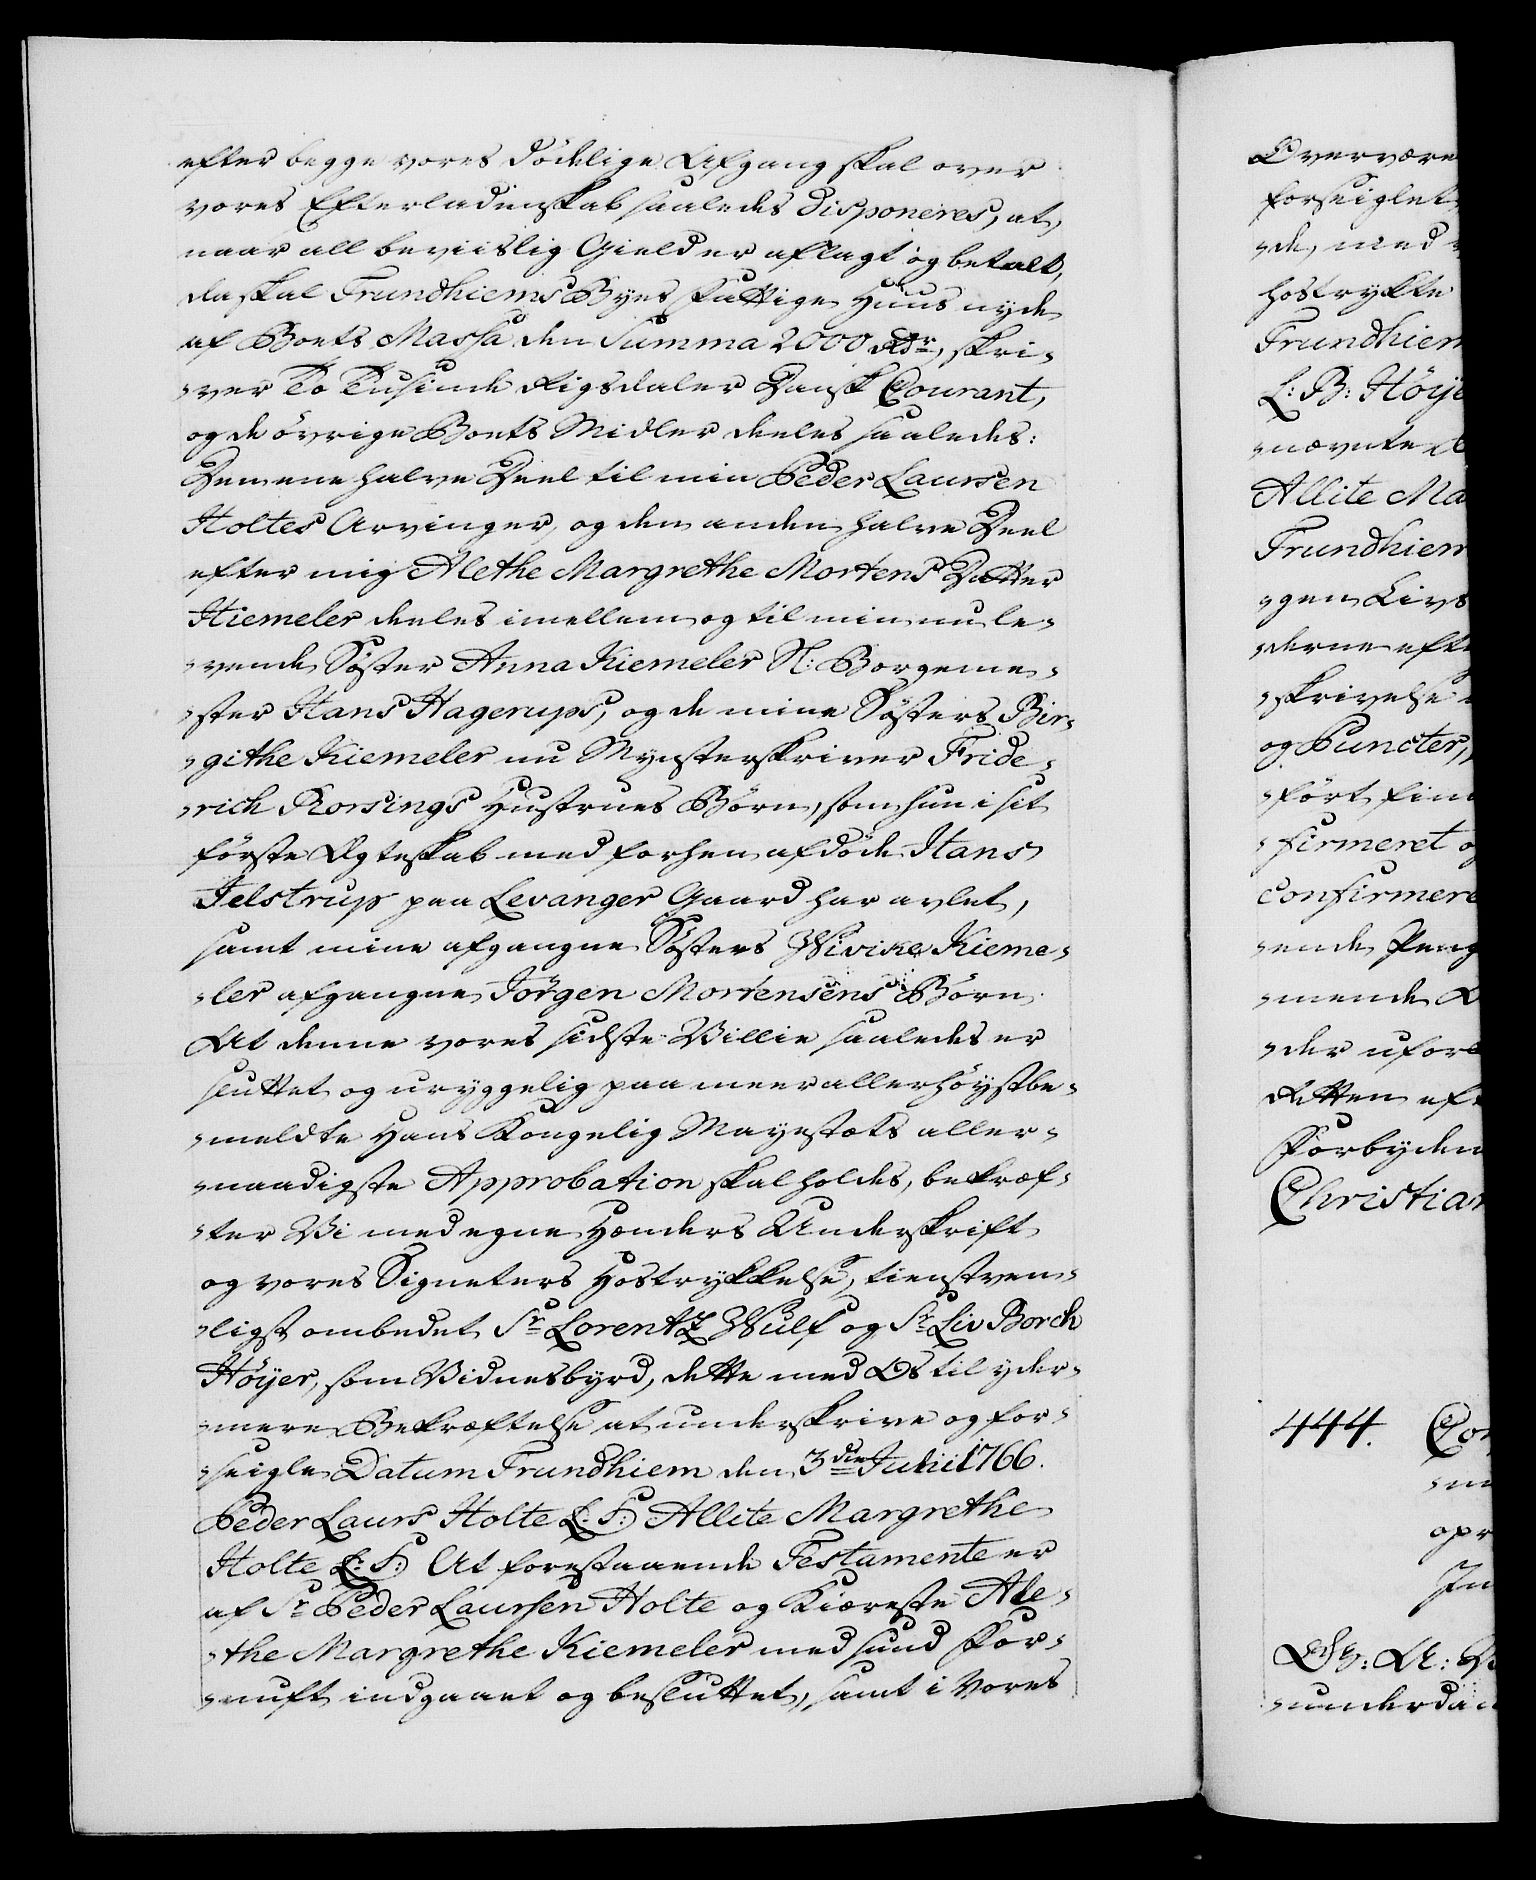 efter begge vores dödelige Afgang skal over
vores Efterladenskab saaledes disponeres, at,
naar all beviislig Gield er aflagt og betalt,
da skal Trundhiems Byes Fattige Huus nyde
af Boets Massa den Summa 2000 Rdr, skri-
-ver To Tusinde Rigsdaler Dansk Courant,
og de övrige Boets Midler deeles saaledes:
Den ene halve Deel til min Peder Laursen
Holtes Arvinger, og den anden halve Deel
efter mig Alethe Margrethe Mortens Datter
Hiemeler deeles imellem og til min nu le-
-vende Söster Anna Kiemeler Sl: Borgeme-
-ster Hans Hagerups, og de mine Sösters Bir-
-githe Kiemeler nu Mynsterskriver Fride-
-rich Rorsings Hustrues Börn, som hun i sit
förste Ægteskab med forhen afdöde Hans
Jelstrup paa Levanger Gaard har avlet,
samt mine afgangne Sösters Wivike Kieme-
-ler afgangne Jörgen Mortensens Börn.
At denne vores sidste Villie saaledes er
sluttet og uryggelig paa meer allerhöystbe-
-meldte Hans Kongelig Mayestæts aller-
-naadigste Approbation skal holdes, bekræf-
-ter Vi med egne Hænders Underskrift
og vores Signeters Hostrykkelse, tienstven-
-ligst ombedet Sr Lorentz Wulf og Sr Liv Borch
Höyer, som Vidnesbyrd, dette med Os til yder-
-mere Bekræftelse at underskrive og for-
-seigle Datum Trundhiem den 3die Julii 1766.
Peder Laurs Holte L: S: Allite Margrethe
Holte L: S: At forestaaende Testamente er
af Sr Peder Laursen Holte og Kiæreste Ale-
-the Margrethe Kiemeler med sund For-
-nuft indgaaet og besluttet, samt i Vores
Overvære
forseiglet
-de, med
hostrykte
Trundhiem
L: B: Höye
-nævnte
Allite Ma
Trundhiem
-gen Livs
-derne efte
-skrivelse
og Puncter,
-fört fin
-firmeret o
confirmere
-ende Peng
-mende
-der ufor
Retten eft
Forbyden
Christian
444. Con
opr
-underda